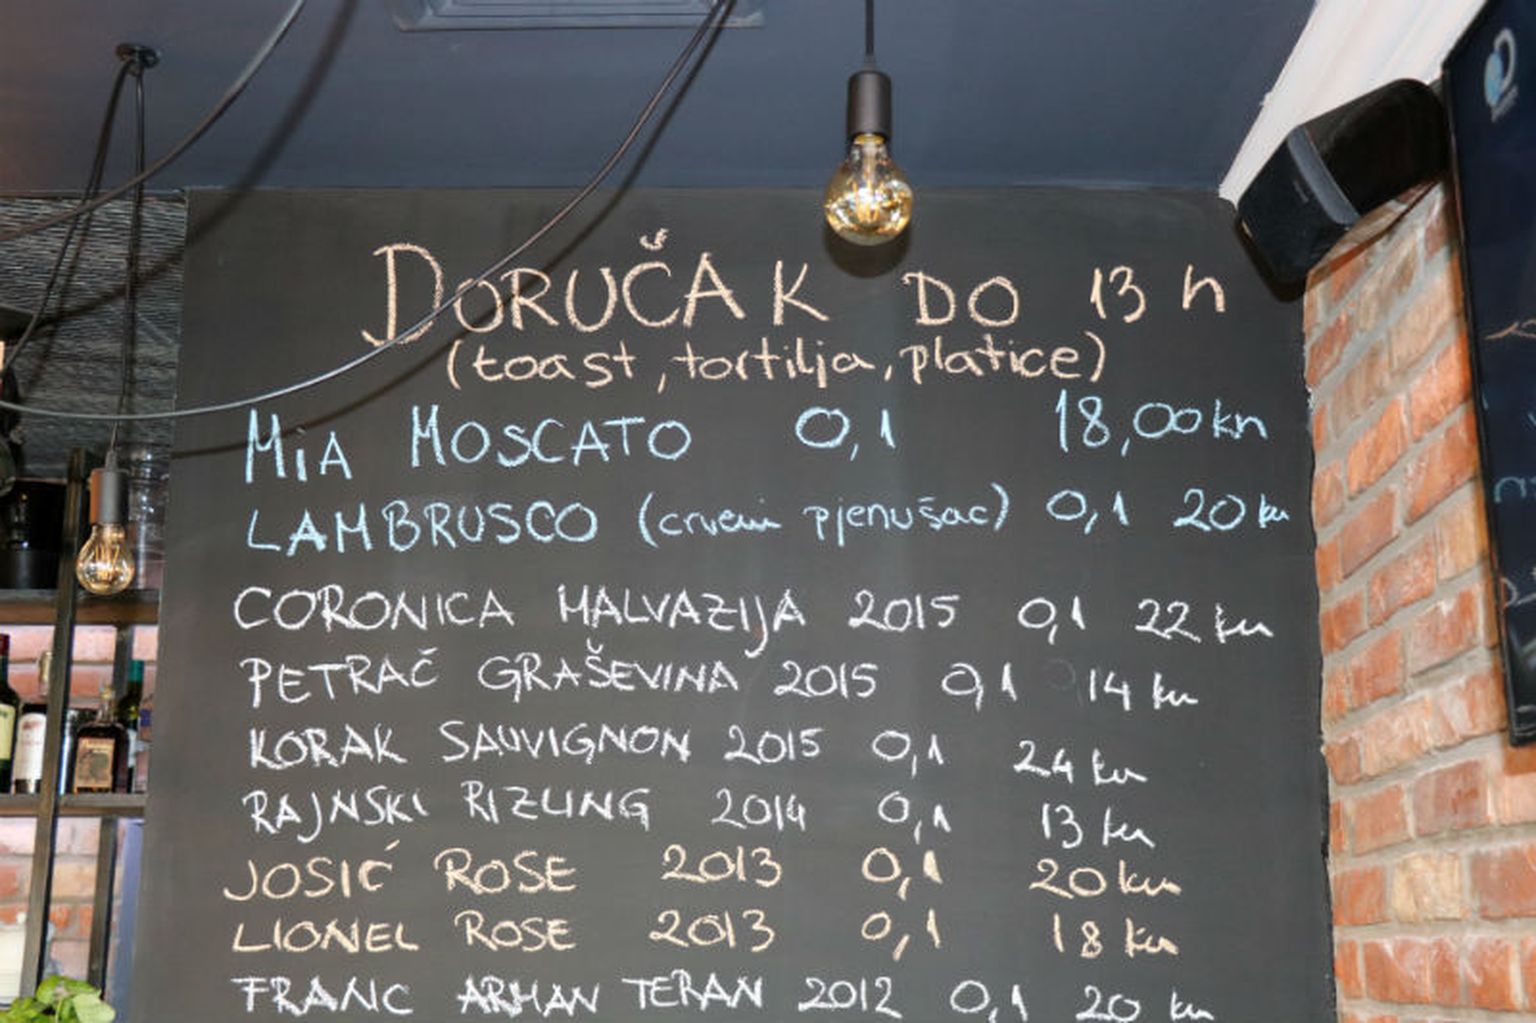 DORUČAK DO 13 h
(toast, tortilja, platice)
MiA MOSCATO 0,1 18,00 kn
LAMBRUSCO (crveni pjenušac) 0,1 20 kn
CORONICA MALVAZIJA 2015 0,1 22 kn
PETRAČ GRAŠEVINA 2015 0,1 14 kn
KORAK SAUVIGNON 2015 0,1 24 kn
RAJNSKI RIZLING 2014 0,1 13 kn
JOSIĆ ROSE 2013 0,1 20 kn
LIONEL ROSE 2013 0,1 18 kn
FRANC ARMAN TERAN 2012 0,1 20 kn